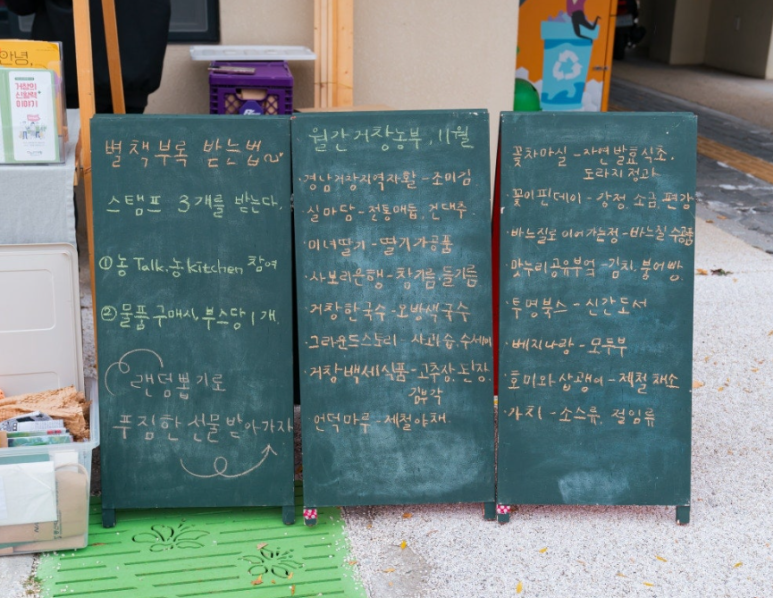 안녕,
거창의
신활력
이야기
별책부록 받는법
스탬프 3개를 받는다.
① 농Talk, 농kitchen 참여
② 물품 구매시, 부스당 1개.
랜덤뽑기로
푸짐한 선물 받아가자
월간 거창농부, 11월
·경남거창지역자활 - 조미김
·실마당 - 전통매듭, 건대추.
·미녀딸기 - 딸기가공품
·사보리은행 - 참기름 들기름
·거창한국수 - 오방색국수
·그라운드스토리 - 사과즙, 수세미
·거창백세식품 - 고추장, 된장,
김부각
·언덕마루 - 제철야채
꽃차마실 - 자연발효식초,
도라지정과
·꽃이핀데이 - 강정, 소금, 편강
·바느질로 이어가는정 - 바느질 수공품
·맛누리공유부엌 - 김치, 붕어빵.
·투명북스 - 신간도서
·베지나랑 - 모두부
·호미와 삽괭이 - 제철 채소
·가치 - 소스류, 절임류